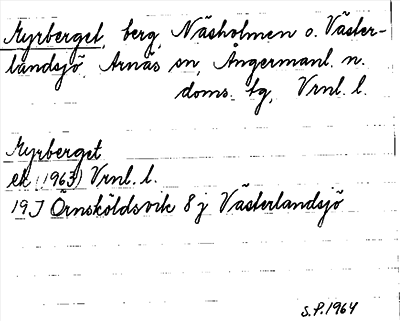 Myrberget, berg, Näsholmen o. Väster-
landsjö, Arnäs sn, Ångermanl. n.
doms. tg, Vrnl. l.
Myrberget
ek (1963) Vrnl. l.
19J Örnsköldsvik 8 j Västerlandsjö
S.P. 1964